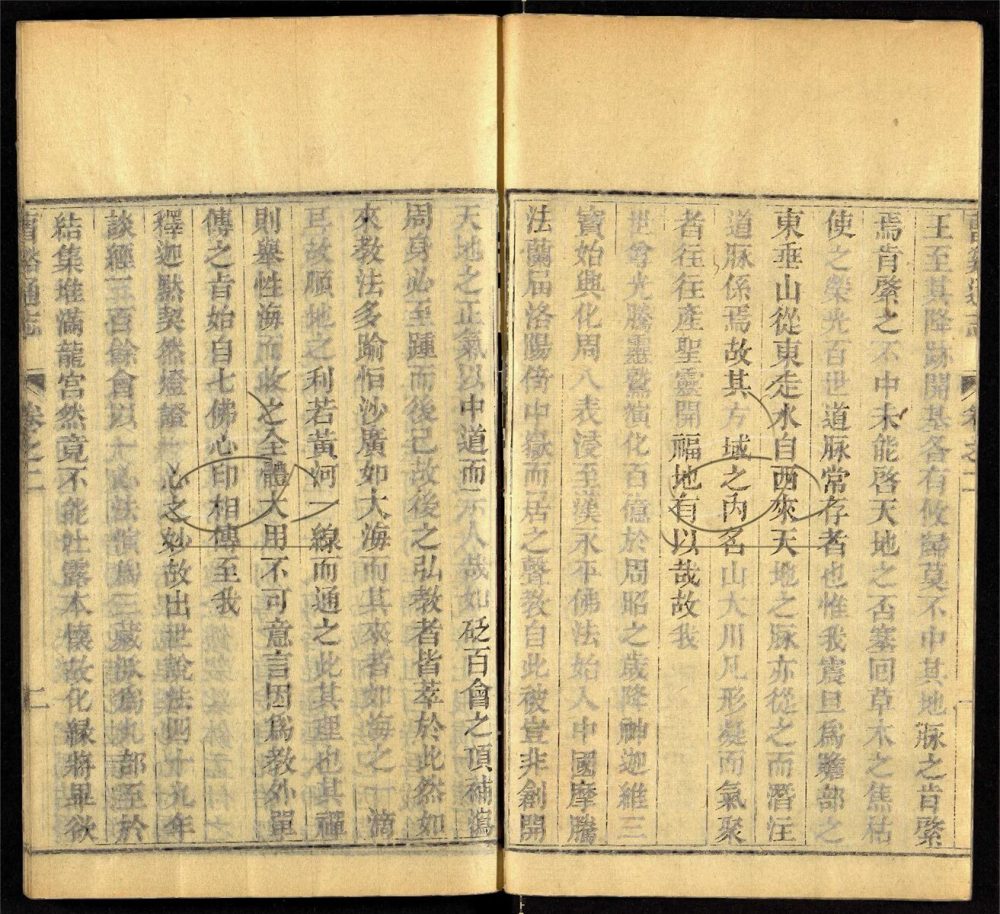 曹溪通志 卷之二 一
王至其降跡開基各有攸歸莫不中其地脉之肯綮
焉肯綮之不中未能啓天地之否塞回草木之焦枯
使之榮光百世道脉常存者也惟我震旦爲贍部之
東垂山從東走水自西來天地之脉亦從之而潛注
道脉係焉故其方域之内名山大川凡形凝而氣聚
者往往產聖靈開福地有以哉故我
世尊光騰靈演化百億於周昭之歲降神迦維三
寶始興化周八表浸至漢永平佛法始入中國摩騰
法蘭届洛陽倚中嶽而居之聲教自此被豈非創開
天地之正氣以中道而示人哉如砭百會之頂補瀉
周身必至踵而後已故後之弘教者皆萃於此然如
來教法多踰恒沙廣如大海而其來者如海之一滴
耳故順地之利若黃河一線而通之此其理也其禪
則舉性海而收之全體大用不可意言因爲教外單
傳之旨始自七佛心印相傳至我
釋迦默契然燈證一心之妙故出世說法四十九年
談經三百餘會以一心法演爲三藏派爲九部至於
結集堆滿龍宮然竟不能吐露本懷故化緣將畢欲
曹溪通志 卷之二 二